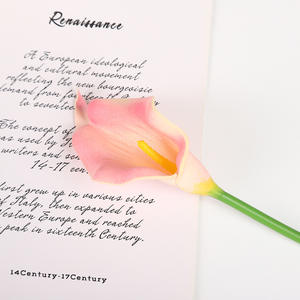 Renaissance
A European ideological
and cultural movement
reflecting the new bourgeoisie
demand from
to
The concept of
was used by
writers and
14-17
first grew up in various cities
of Italy, then expanded to
Western Europe and reached
peak in sixteenth Century.
14Century-17Century